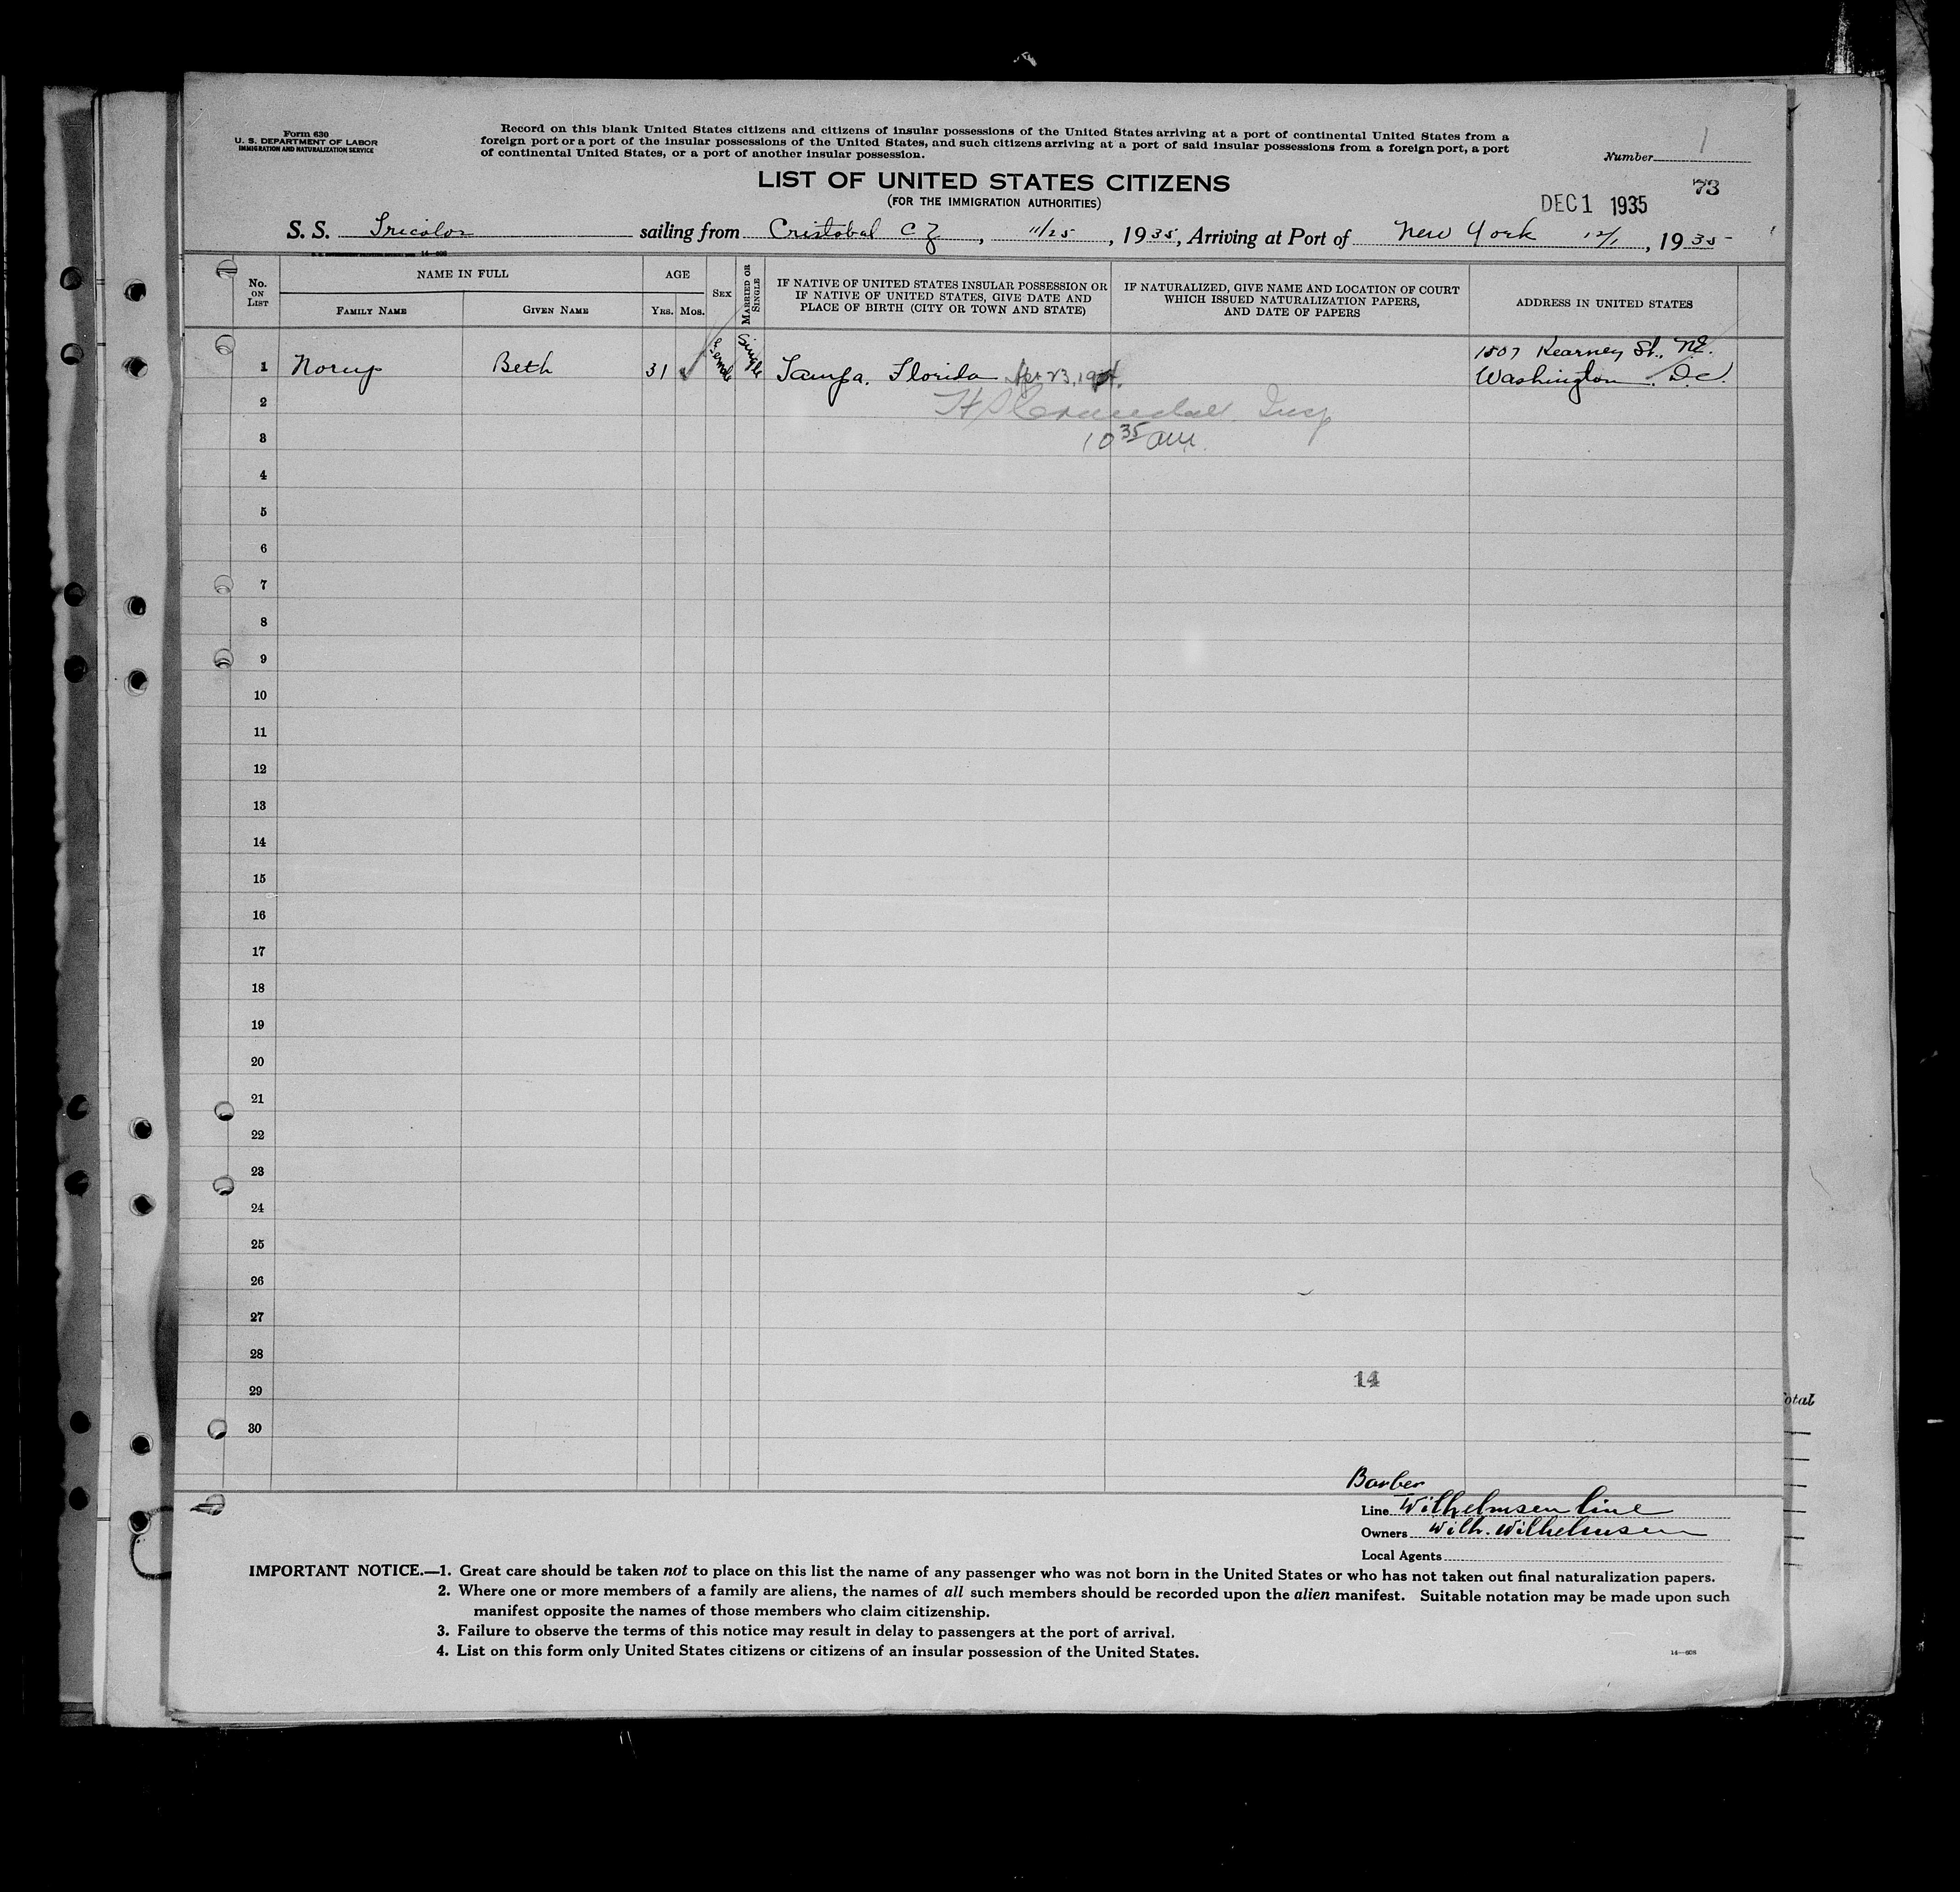 Form 630
U. S. DEPARTMENT OF LABOR
IMMIGRATION AND NATURALIZATION SERVICE
Record on this blank United States citizens and citizens of insular possessions of the United States arriving at a port of continental United States from a
foreign port or a port of the insular possessions of the United States, and such citizens arriving at a port of said insular possessions from a foreign port, a port
of continental United States, or a port of another insular possession.
Number 1
73
LIST OF UNITED STATES CITIZENS
(FOR THE IMMIGRATION AUTHORITIES)
DEC 1 1935
S. S. Tricolor sailing from Cristobal C Z, 11/25, 1935, Arriving at Port of New York 12/1, 1935
14-608
No. ON LIST
NAME IN FULL
FAMILY NAME
GIVEN NAME
AGE
YRS. MOS.
SEX
MARRIED OR SINGLE
IF NATIVE OF UNITED STATES INSULAR POSSESSION OR
IF NATIVE OF UNITED STATES, GIVE DATE AND
PLACE OF BIRTH (CITY OR TOWN AND STATE)
IF NATURALIZED, GIVE NAME AND LOCATION OF COURT
WHICH ISSUED NATURALIZATION PAPERS,
AND DATE OF PAPERS
ADDRESS IN UNITED STATES
1507 Kearney St., NE.
1 Norup Beth 31 Female Single Tampa, Florida 23, Washington D.C.
2 Insp
3 10 35 am.
4
5
6
7
8
9
10
11
12
13
14
15
16
17
18
19
20
21
22
23
24
25
26
27
28
14
29
30
otal
Barber
Line Wilhelmsen line
Owners Wilh. Wilhelmsen
Local Agents
IMPORTANT NOTICE.—1. Great care should be taken not to place on this list the name of any passenger who was not born in the United States or who has not taken out final naturalization papers.
2. Where one or more members of a family are aliens, the names of all such members should be recorded upon the alien manifest. Suitable notation may be made upon such
manifest opposite the names of those members who claim citizenship.
3. Failure to observe the terms of this notice may result in delay to passengers at the port of arrival.
4. List on this form only United States citizens or citizens of an insular possession of the United States.
14-608